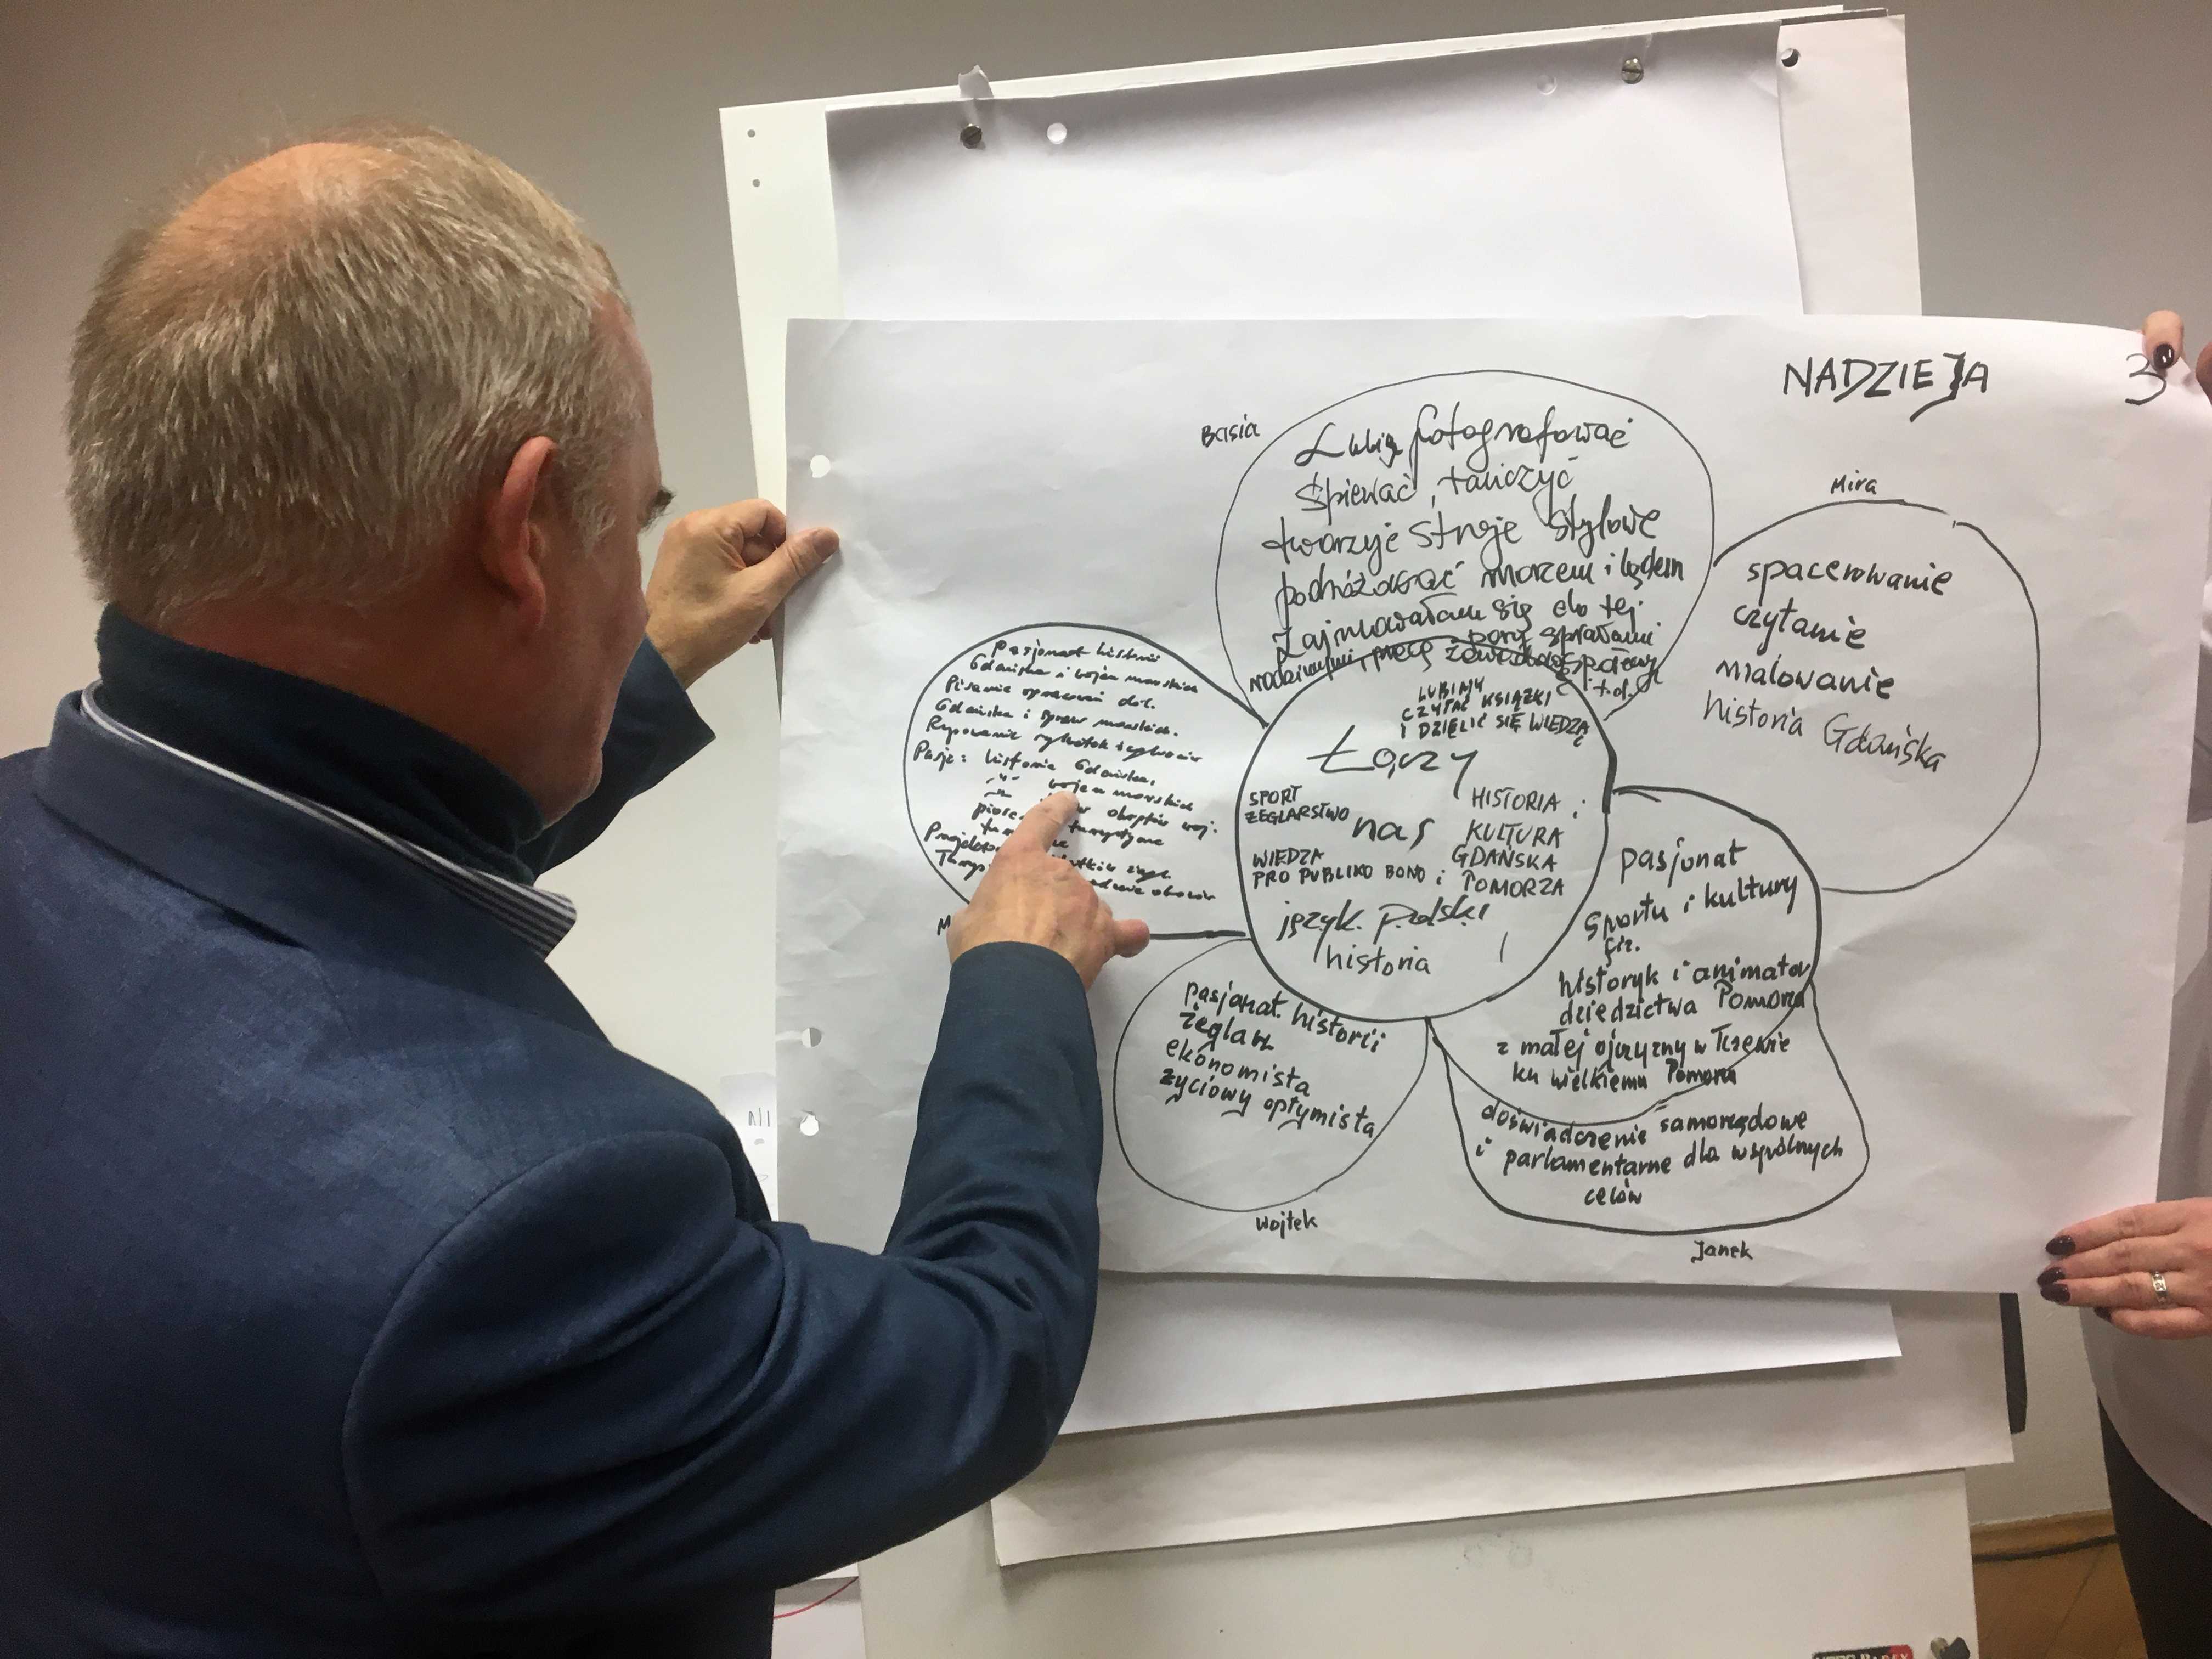 NADZIEJA
3
Basia
Lubię fotografować
śpiewać, tańczyć
tworzyć stroje stylowe
podróżować morzem i lądem
Zajmowałam się do tej
pory sprawami
rodzinnymi, pracą
i t.d.
Mira
spacerowanie
czytanie
malowanie
historia Gdańska
Pasjonat historii
Gdańska i wojen morskich
Pisanie opracowań dot.
Gdańska i spraw morskich.
Rysowanie
Pasje: historia Gdańska,
-"- wojen morskich
okrętów woj.
turystyczne
M
LUBIMY
CZYTAĆ KSIĄŻKI
I DZIELIĆ SIĘ WIEDZĄ
Łączy
nas
SPORT
ŻEGLARSTWO
WIEDZA
PRO PUBLIKO BONO
HISTORIA i
KULTURA
GDAŃSKA
i POMORZA
język polski
historia
pasjonat
sportu i kultury
fiz.
historyk i animator
dziedzictwa Pomorza
z małej ojczyzny w Tczewie
ku wielkiemu Pomorzu
doświadczenie samorządowe
i parlamentarne dla wspólnych
celów
Janek
pasjonat historii
żeglarz
ekonomista
życiowy optymista
Wojtek